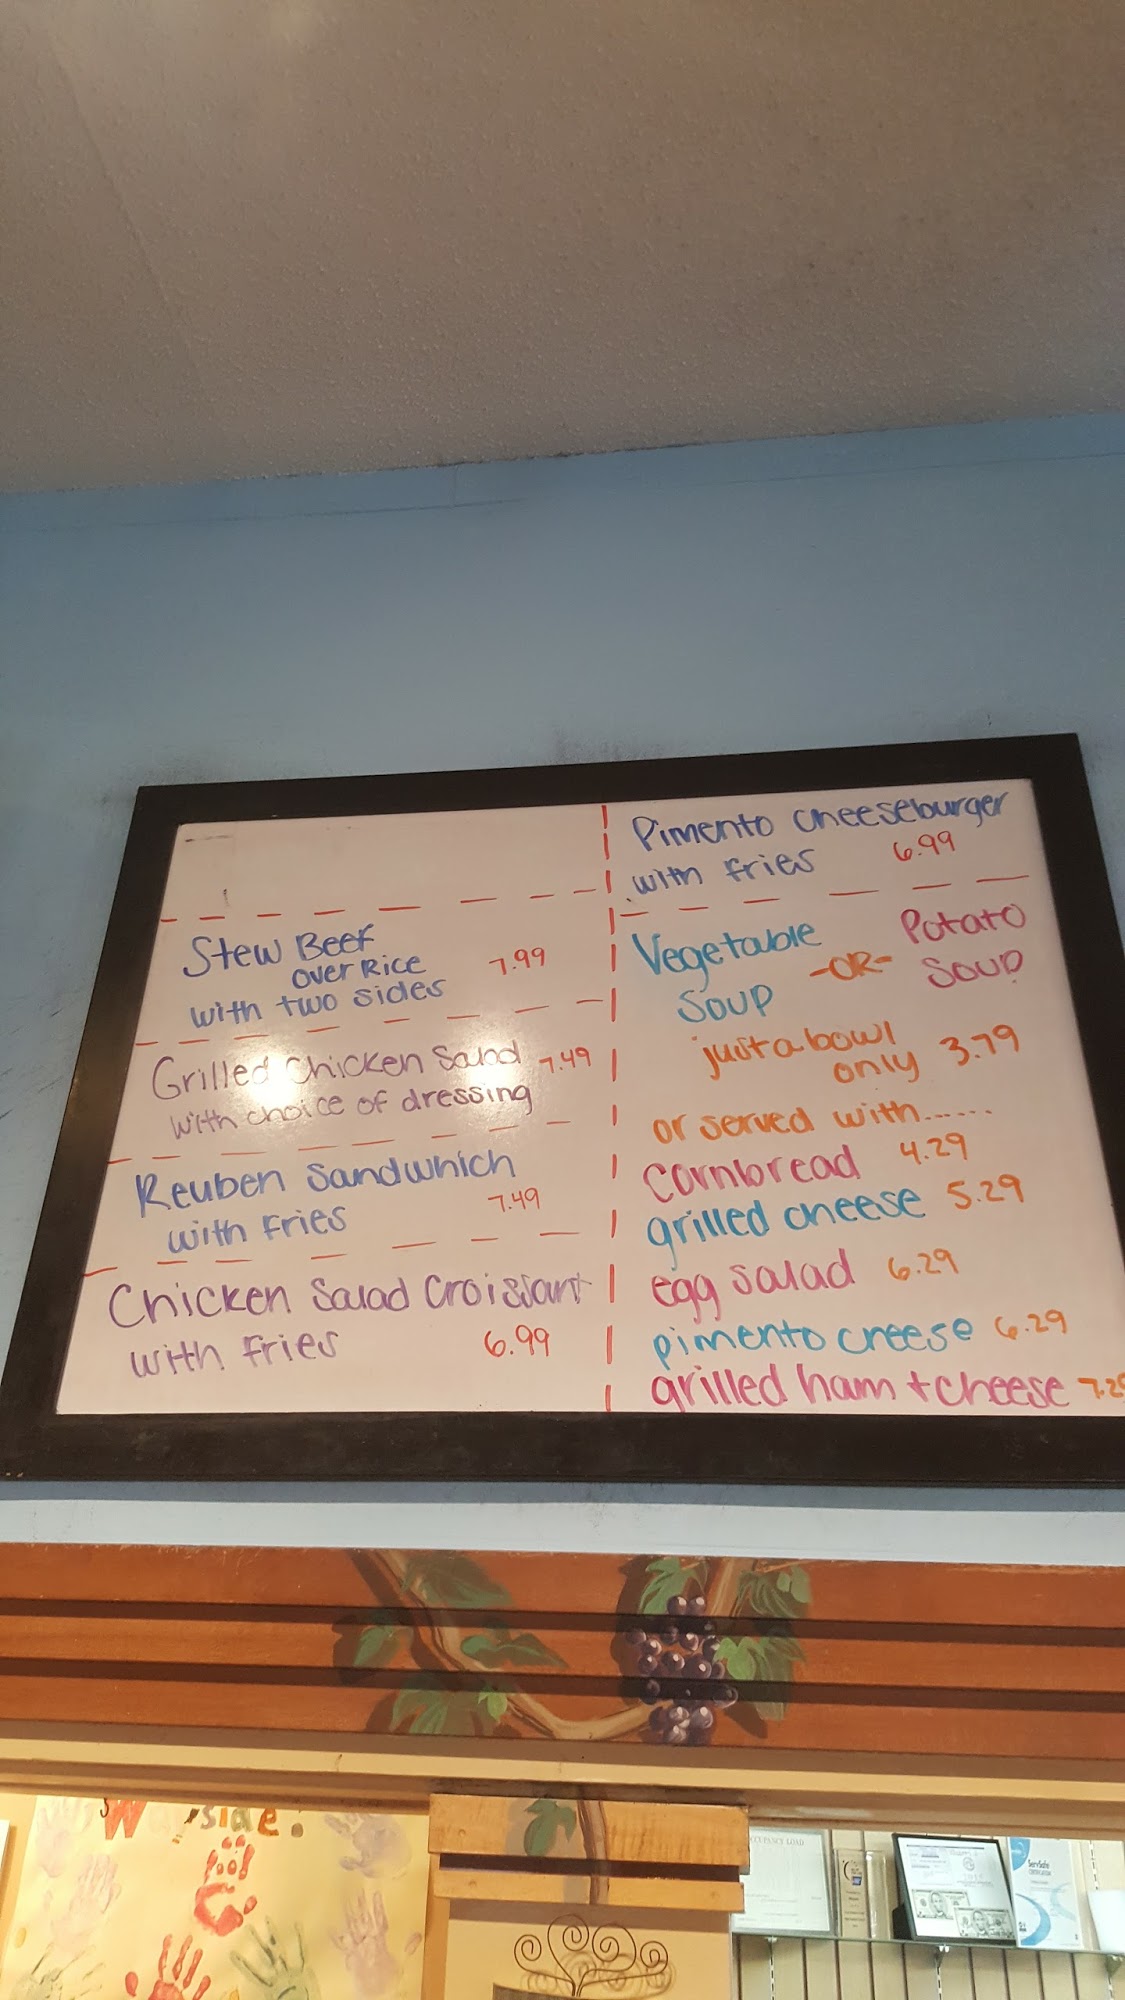 Stew Beef
over Rice 7.99
with two sides
Grilled Chicken Salad 7.49
with choice of dressing
Reuben Sandwhich
with fries 7.49
Chicken Salad Croissant
with fries 6.99
Pimento cheeseburger
with fries 6.99
Vegetable -OR- Potato
Soup Soup
just a bowl
only 3.79
or served with......
cornbread 4.29
grilled cheese 5.29
egg salad 6.29
pimento cheese 6.29
grilled ham + cheese
OCCUPANCY LOAD
ServSafe